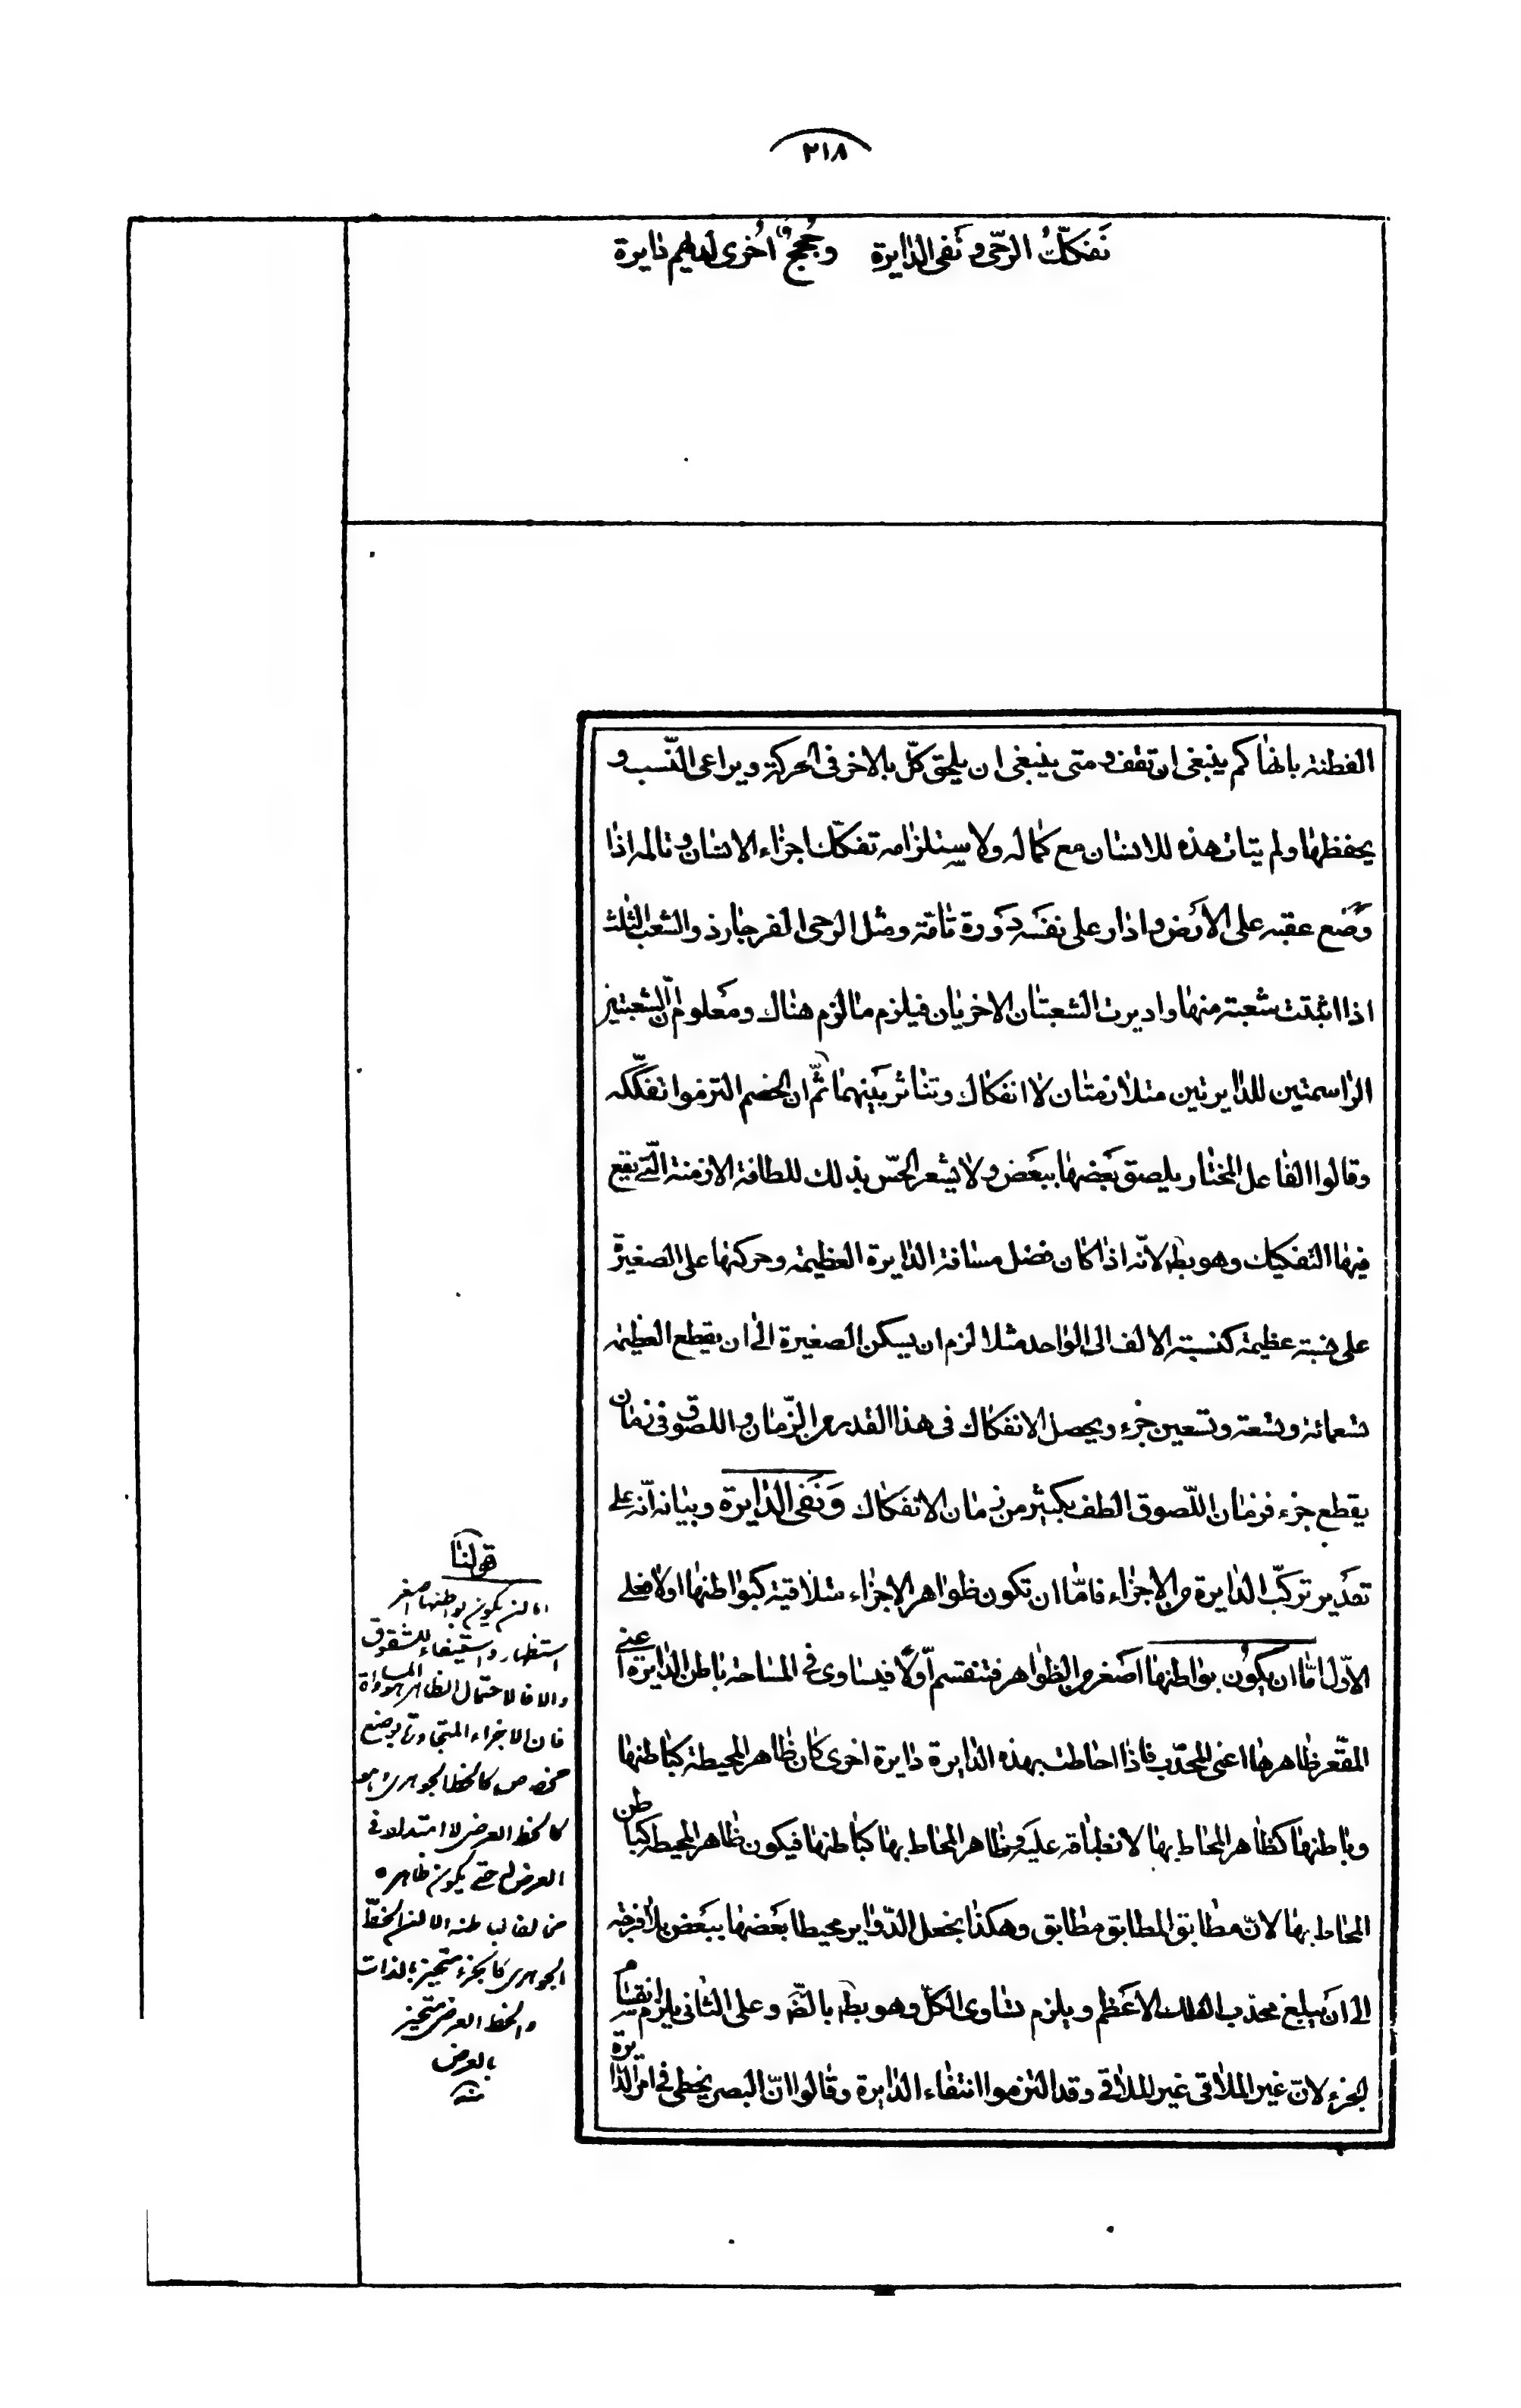 ٢١٨
تَفَكّكُ الرّحى و نَفى الدّايرة وحُجَجٌ اُخرى لديهم دايرة
الفطنة بانها كم ينبغى ان تقف و متى ينبغى ان يلحق كلّ بالاخر فى الحركة ويراعى النّسب و
يحفظها ولم يتات هذه للانسان مع كماله ولاستلزامه تفكّك اجزاء الانسان و تالمه اذا
وضع عقبه على الارض و ادار على نفسه دورة تامّة ومثل الرحى الفرجار ذو الشعب الثلث
اذا اثبتت شعبة منها وادیرت الشعبتان الاخریان فیلزم ما لزم هناك ومعلوم انّ الشعبتین
الراسمتين للدايرتين متلازمتان لا انفكاك وتناثر بينهما ثمّ ان الخصم التزموا تفكّكه
وقالوا الفاعل المختار يلصق بعضها ببعض ولا يشعر الحسّ بذلك للطافة الازمنة الّتى يقع
فيها التفكيك وهو بط لانّه اذا كان فضل مسافة الدايرة العظيمة وحركتها على الصغيرة
على نسبة عظيمة كنسبة الالف الى الواحد مثلا لزم ان يسكن الصغيرة الى ان يقطع العظيمة
تسعمائة وتسعة وتسعين جزء ويحصل الانفكاك فى هذا القدر من الزّمان و اللصوق فى زمان
يقطع جزء فزمان اللّصوق الطف بكثير من زمان الانفكاك وَنَفى الدايرة وبيانه انّه على
تقدير تركّب الدايرة من الاجزاء فامّا ان تكون ظواهر الاجزاء متلاقية كبواطنها اولا فعلى
الاوّل امّا ان يكون بواطنها اصغر من الظواهر فتنقسم اوّلا فيساوى فى المساحة باطن الدايرة اعنى
المقعّر ظاهرها اعنى المحدّب فاذا احاطت بهذه الدايرة دايرة اخرى كان ظاهر المحيطة كباطنها
وباطنها كظاهر المحاط بها لانطباقه عليه وظاهر المحاط بها كباطنها فيكون ظاهر المحيطة كباطن
المحاط بها لانّ مطابق المطابق مطابق وهكذا نجعل الدّواير محيطا بعضها ببعض بلا فرجة
الى ان يبلغ محدّب الفلك الاعظم ويلزم تساوى الكلّ وهو بط بالضّ وعلى الثانى يلزم انقسام
الجزء لانّ غير الملاقى غير الملاقى وقد التزموا انتفاء الدايرة وقالوا انّ البصر يخطى فى امر الدايرة
قولنا
اما ان يكون بواطنها اصغر
استظهار و استيفاء للشقوق
والا فالاحتمال الظاهر هو المساواة
فان الاجزاء المتجاورة بوضع
مخصوص كالخط الجوهرى وهو
كالخط العرضى لا امتداد فى
العرض له حتى يكون ظاهره
مخالف لباطنه الا ان الخطّ
الجوهرى كالجزء متحيز بالذات
والخط العرضى متحيز
بالعرض
منه